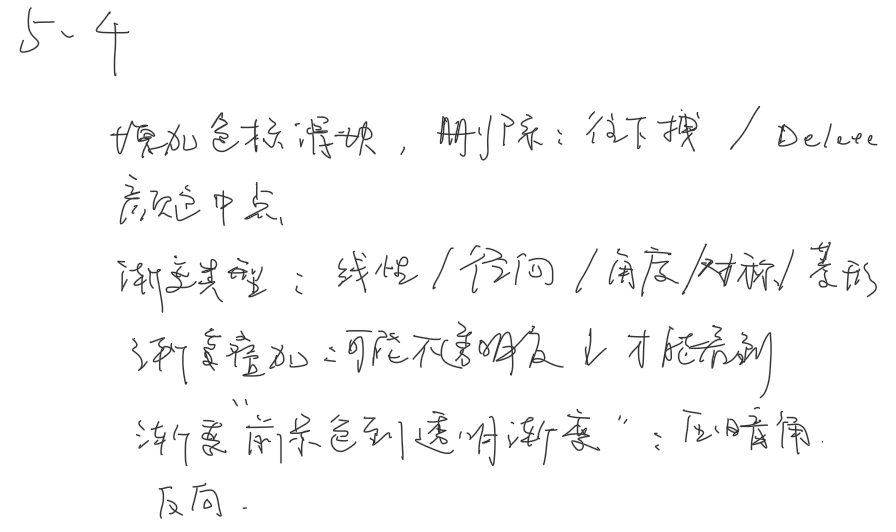 5、4
填加色标滑块，删除：往下拽 / Delete
颜色中点
渐变类型：线性/径向/角度/对称/菱形
渐变叠加：可能不透明度↓才能看到
渐变"前景色到透明渐变"：压暗角.
反向.